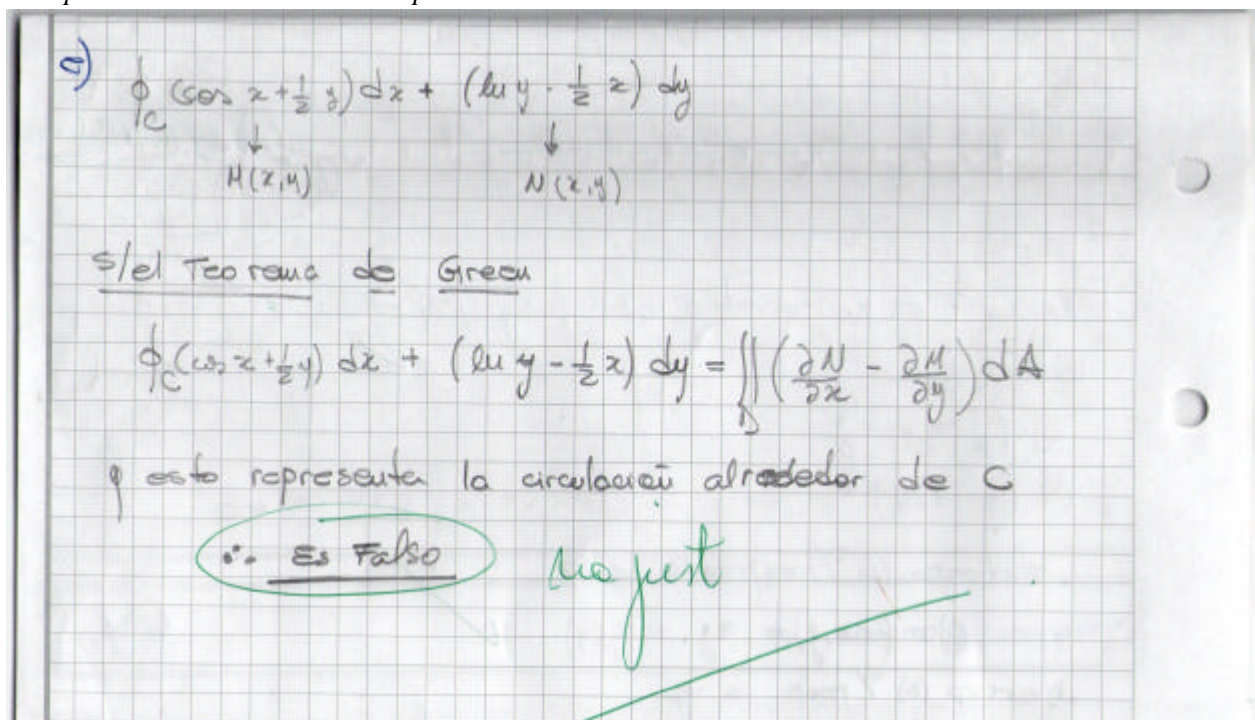 a)
∮_C (cos x + 1/2 y) dx + (ln y - 1/2 x) dy
↓ ↓
M(x,y) N(x,y)
s/el Teorema de Green
∮_C (cos x + 1/2 y) dx + (ln y - 1/2 x) dy = ∬_D (∂N/∂x - ∂M/∂y) dA
y esto representa la circulación alrededor de C
∴ Es Falso no just